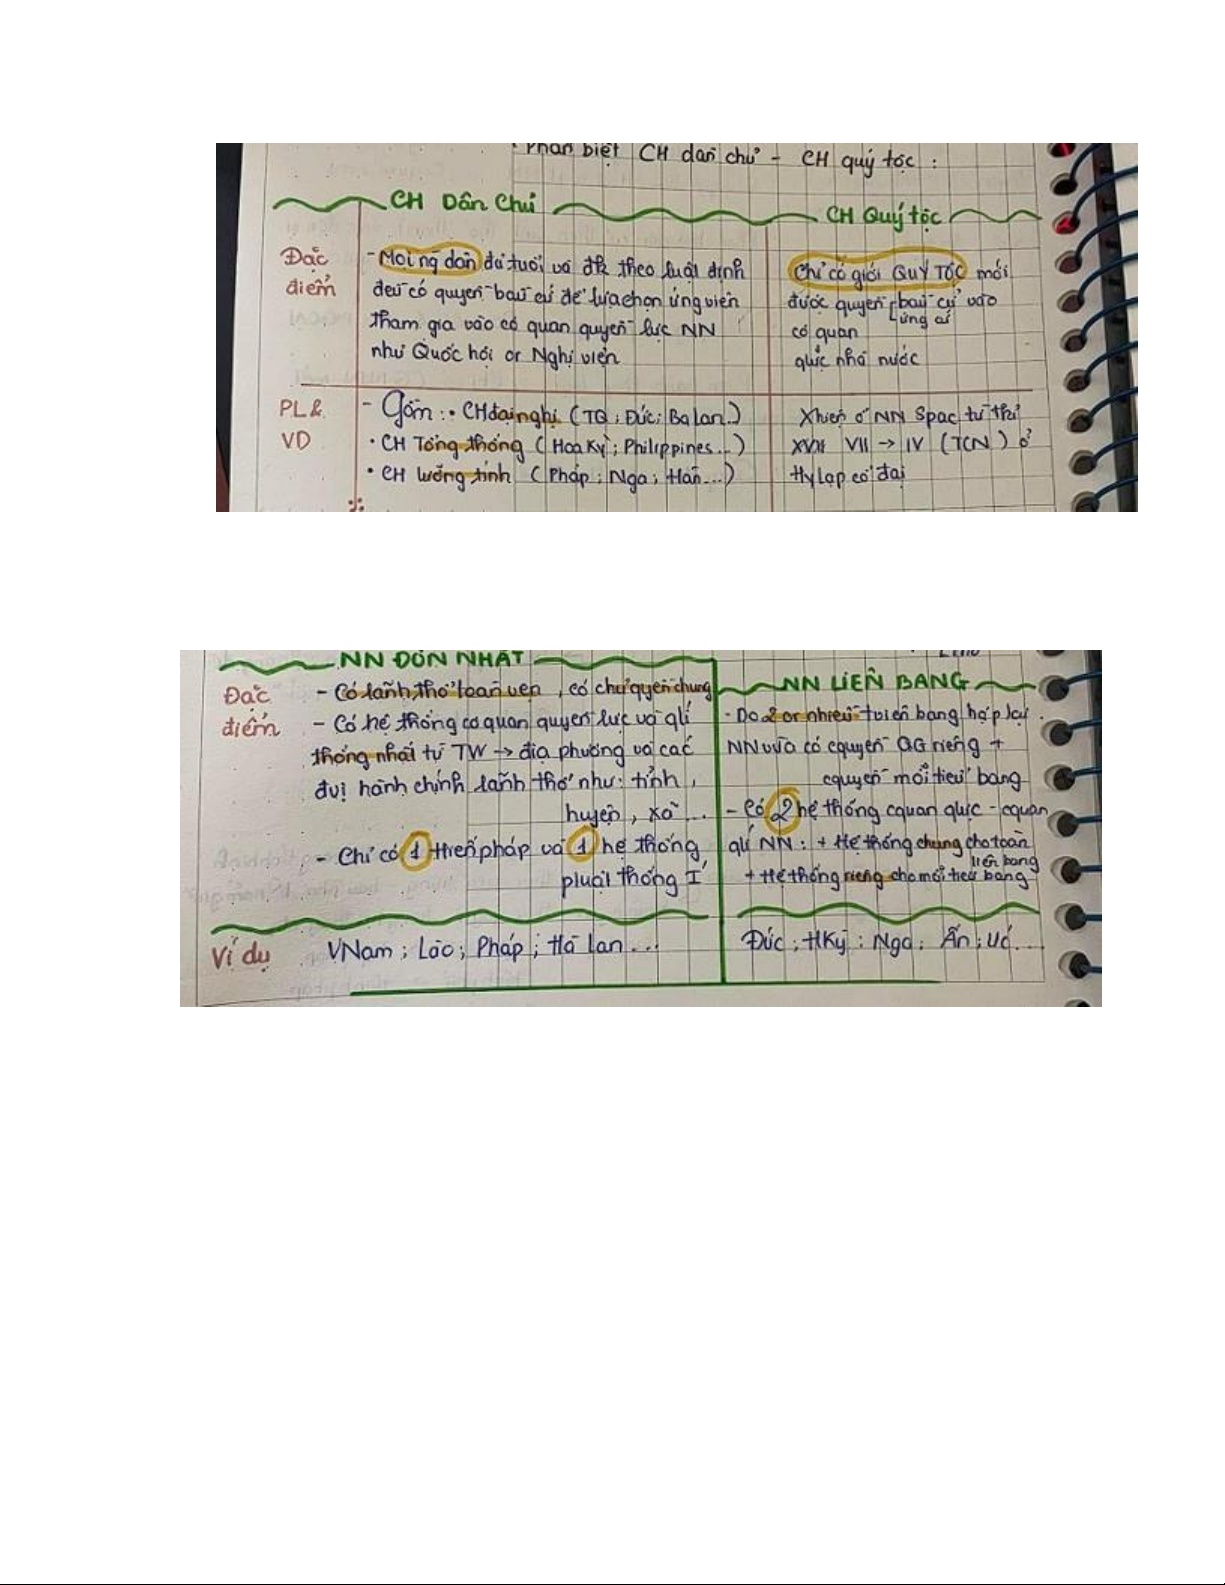 Phân biệt CH dân chủ - CH quý tộc :
CH Dân Chủ
CH Quý tộc
Đặc điểm
- Mọi ng dân đủ tuổi và đk theo luật định
đều có quyền bầu cử để lựa chọn ứng viên
tham gia vào cơ quan quyền lực NN
như Quốc hội or Nghị viện
Chỉ có giới QUÝ TỘC mới
được quyền bầu cử vào
ứng cử
cơ quan
qlực nhà nước
PL &
VD
- Gồm: • CH đại nghị (TQ; Đức; Ba lan..)
• CH Tổng thống (Hoa Kỳ; Philippines...)
• CH lưỡng tính (Pháp; Nga; Hàn...)
Xhiện ở NN Spac từ thế
VII → IV (TCN) ở
Hy lạp cổ đại
NN ĐƠN NHẤT
NN LIÊN BANG
Đặc
điểm
- Có lãnh thổ toàn vẹn, có chủ quyền chung
- Có hệ thống cơ quan quyền lực và qlí
thống nhất từ TW → địa phương và các
đvị hành chính lãnh thổ như: tỉnh,
huyện, xã...
- Chỉ có 1 Hiến pháp và 1 hệ thống
pluật thống I
- Do 2 or nhiều bang hợp lại.
NN vừa có cquyền QG riêng +
cquyền mỗi tiểu bang
- Có 2 hệ thống cquan qlực - cquan
qlí NN: + Hệ thống chung cho toàn
liên bang
+ Hệ thống riêng cho mỗi tiểu bang
Ví dụ
VNam; Lào; Pháp; Hà lan...
Đức; HKỳ; Nga; Ấn; Úc...